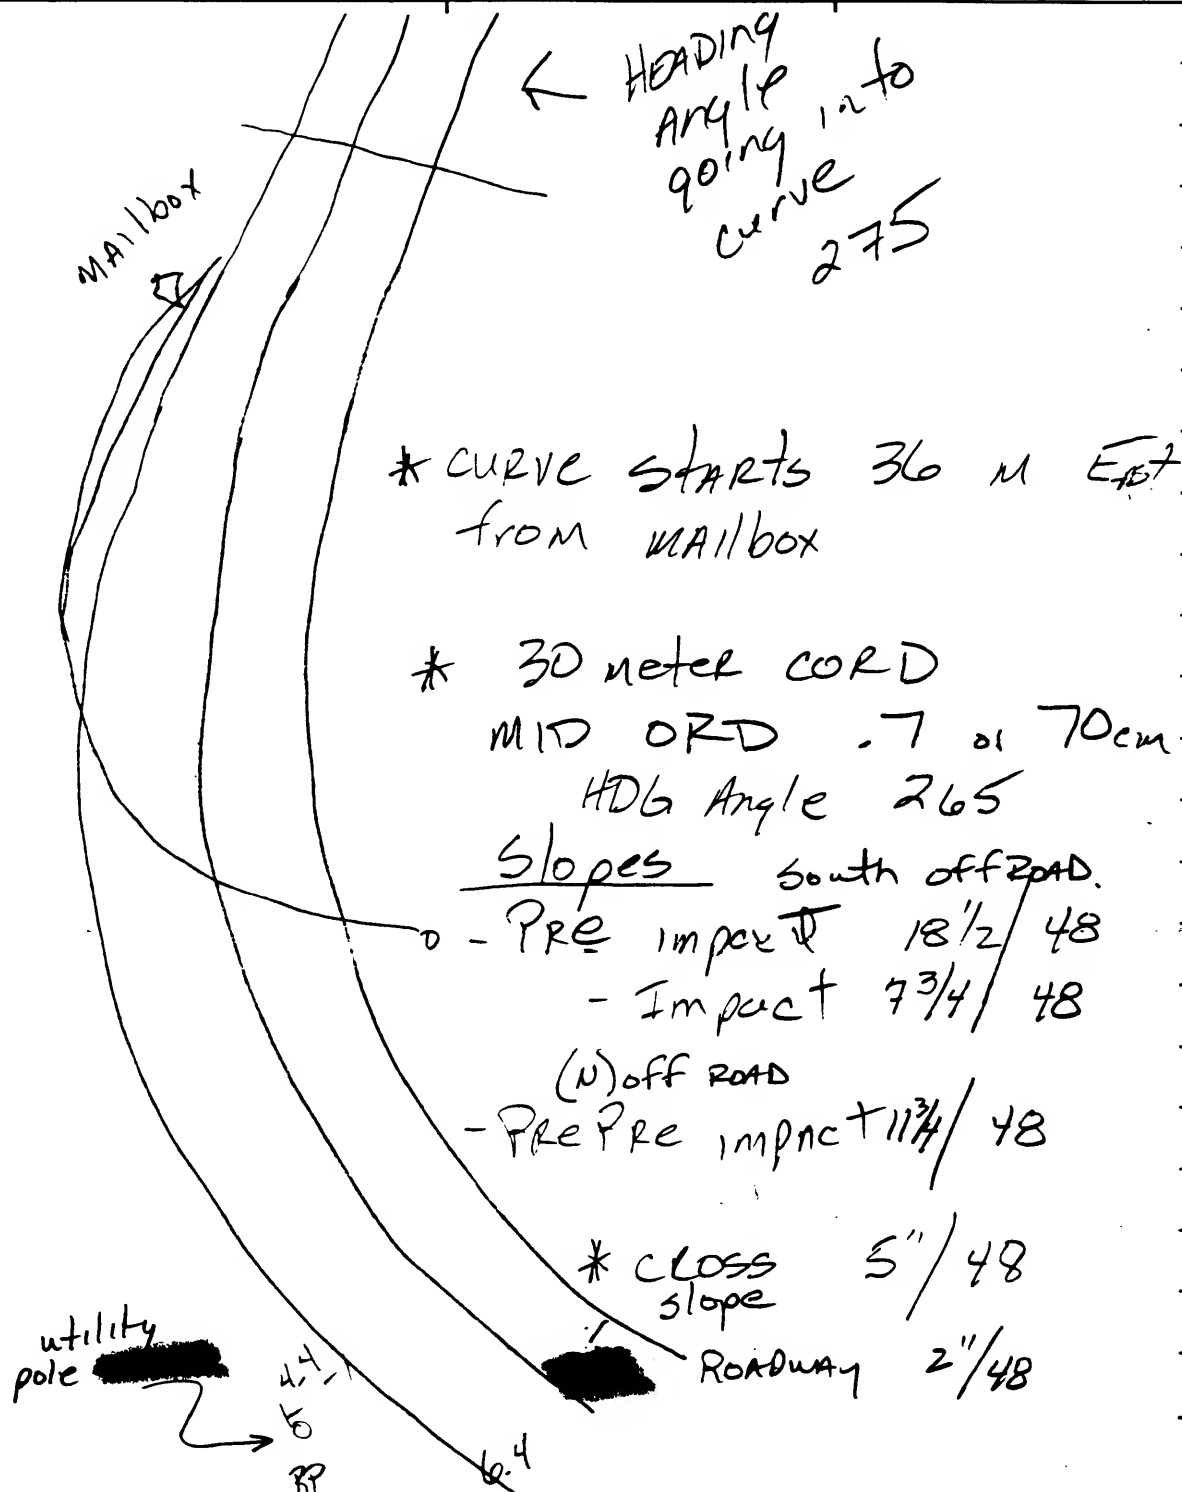 HEADING
Angle
going into
curve
275
MAIlbox
* CURVE STARTS 36 M EAST
from MAIlbox
* 30 meteR CORD
MID ORD .7 or 70cm
HDG Angle 265
Slopes South off ROAD.
- PRe impact 18 1/2 / 48
- Impact 7 3/4 / 48
(N) off ROAD
- PRe PRe impAct 11 3/4 / 48
* CROSS 5" / 48
slope
ROADWAY 2"/48
utility
pole
4.4
RP
6.4